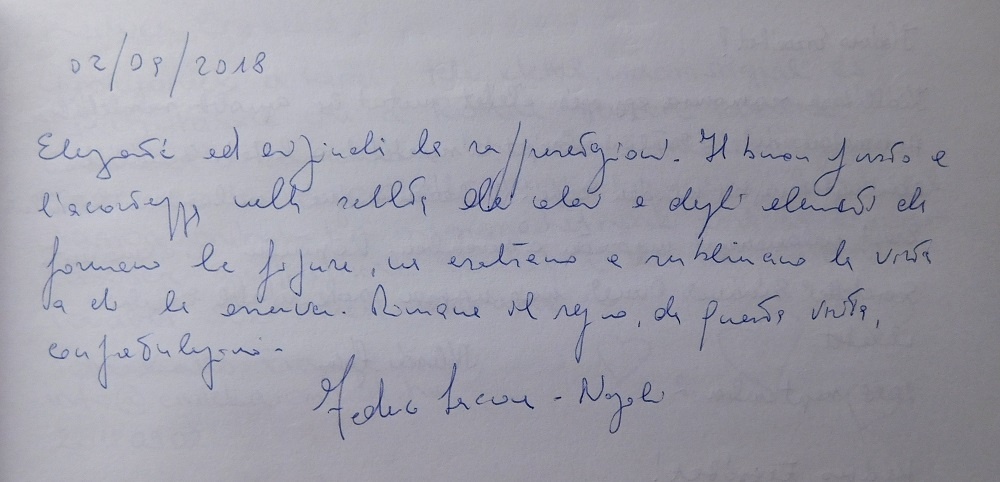 02/09/2018
Eleganti ed originali le rappresentazioni. Il buon gusto e
l'accortezza nella scelta dei colori e degli elementi che
formano le figure, ne esaltano e sublimano la vista
a chi le osserva. Rimane il segno, di questa visita,
congratulazioni -
Napoli